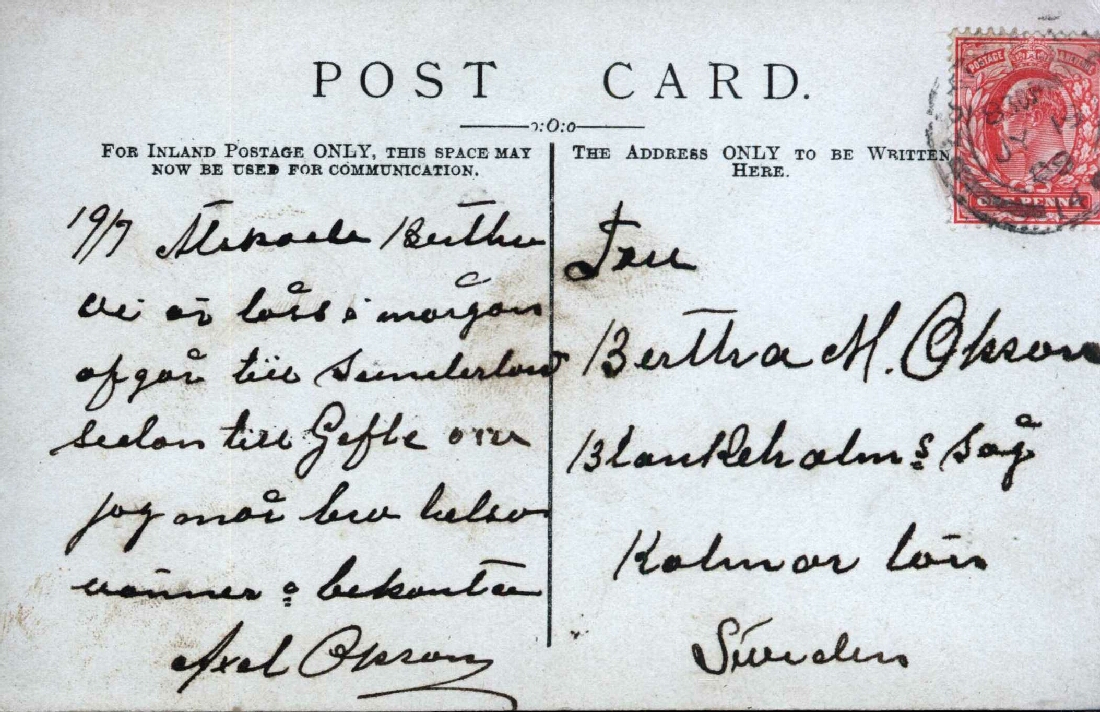 POST CARD.
FOR INLAND POSTAGE ONLY, THIS SPACE MAY
NOW BE USED FOR COMMUNICATION.
THE ADDRESS ONLY TO BE WRITTEN
HERE.
POSTAGE
ONE PENNY
19/7 Bertha
vi är låss i morgon
afgår till Sunderland
sedan till Gefle
jag mår bra helsa
vänner o bekanta
Axel Olsson
Fru
Bertha M. Olsson
Blankeholms såg
Kalmar län
Sweden